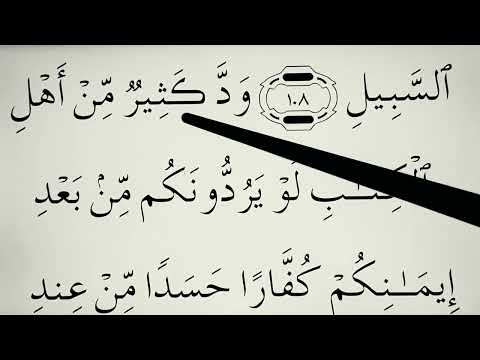 ٱلسَّبِيلِ ١٠٨ وَدَّ كَثِيرٌ مِّنْ أَهْلِ
ٱلْكِتَـٰبِ لَوْ يَرُدُّونَكُم مِّنۢ بَعْدِ
إِيمَـٰنِكُمْ كُفَّارًا حَسَدًا مِّنْ عِندِ